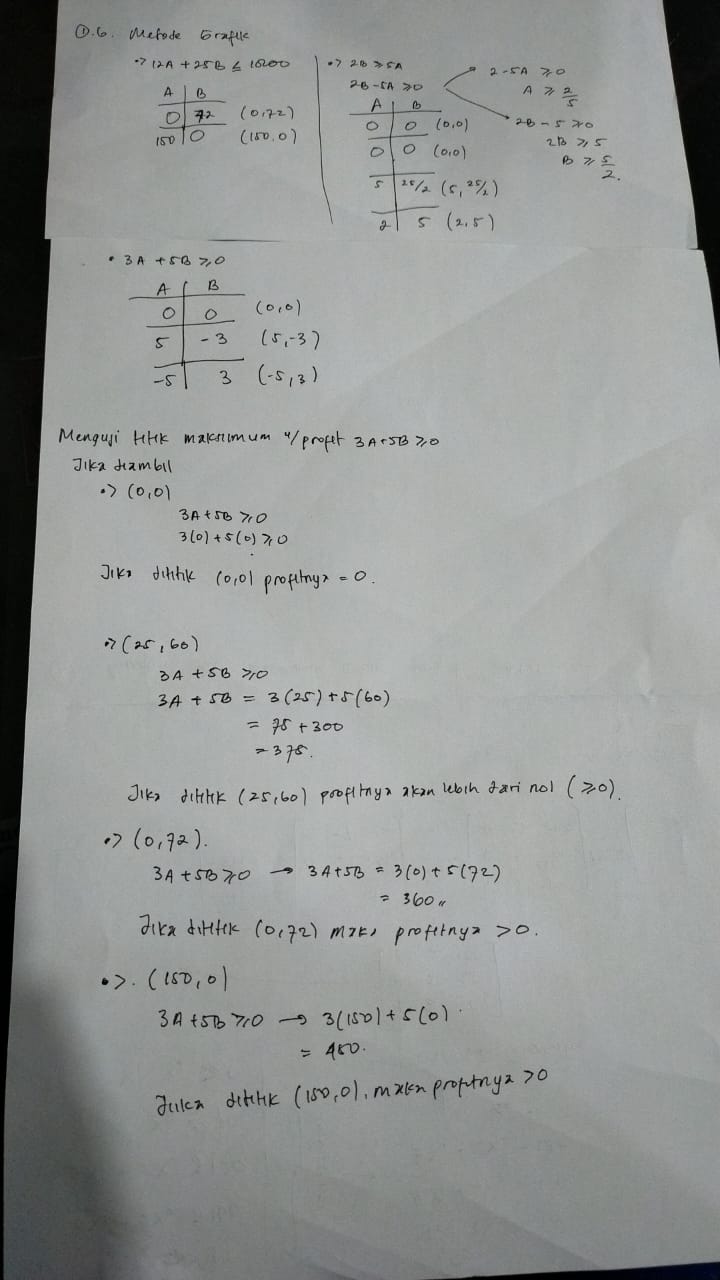 ①.6. Metode Grafik
•> 12A + 25B ≤ 1800
A | B
0 | 72 (0,72)
150 | 0 (150,0)
•> 2B ≥ 5A
2B - 5A ≥ 0
A | B
0 | 0 (0,0)
0 | 0 (0,0)
5 | 25/2 (5, 25/2)
2 | 5 (2,5)
2 - 5A ≥ 0
A ≥ 2/5
2B - 5 ≥ 0
2B ≥ 5
B ≥ 5/2.
• 3A + 5B ≥ 0
A | B
0 | 0 (0,0)
5 | -3 (5,-3)
-5 | 3 (-5,3)
Menguji titik maksimum u/ profit 3A+5B ≥ 0
Jika diambil
•> (0,0)
3A + 5B ≥ 0
3(0) + 5(0) ≥ 0
Jika dititik (0,0) profitnya = 0.
•> (25,60)
3A + 5B ≥ 0
3A + 5B = 3(25) + 5(60)
= 75 + 300
= 375.
Jika dititik (25,60) profitnya akan lebih dari nol (≥0).
•> (0,72).
3A + 5B ≥ 0 → 3A+5B = 3(0) + 5(72)
= 360 //
Jika dititik (0,72) maka profitnya > 0.
•>. (150,0)
3A + 5B ≥ 0 → 3(150) + 5(0).
= 450.
Jika dititik (150,0), maka profitnya > 0